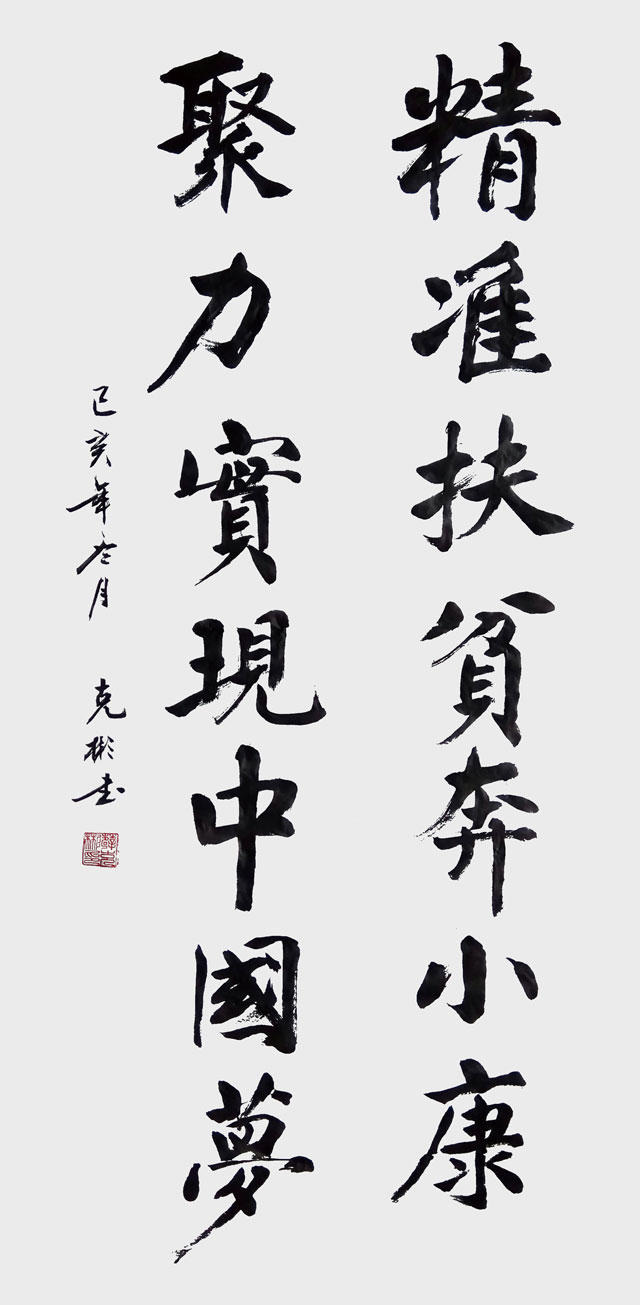 精准扶貧奔小康
聚力實現中國夢
己亥年冬月 克彬書